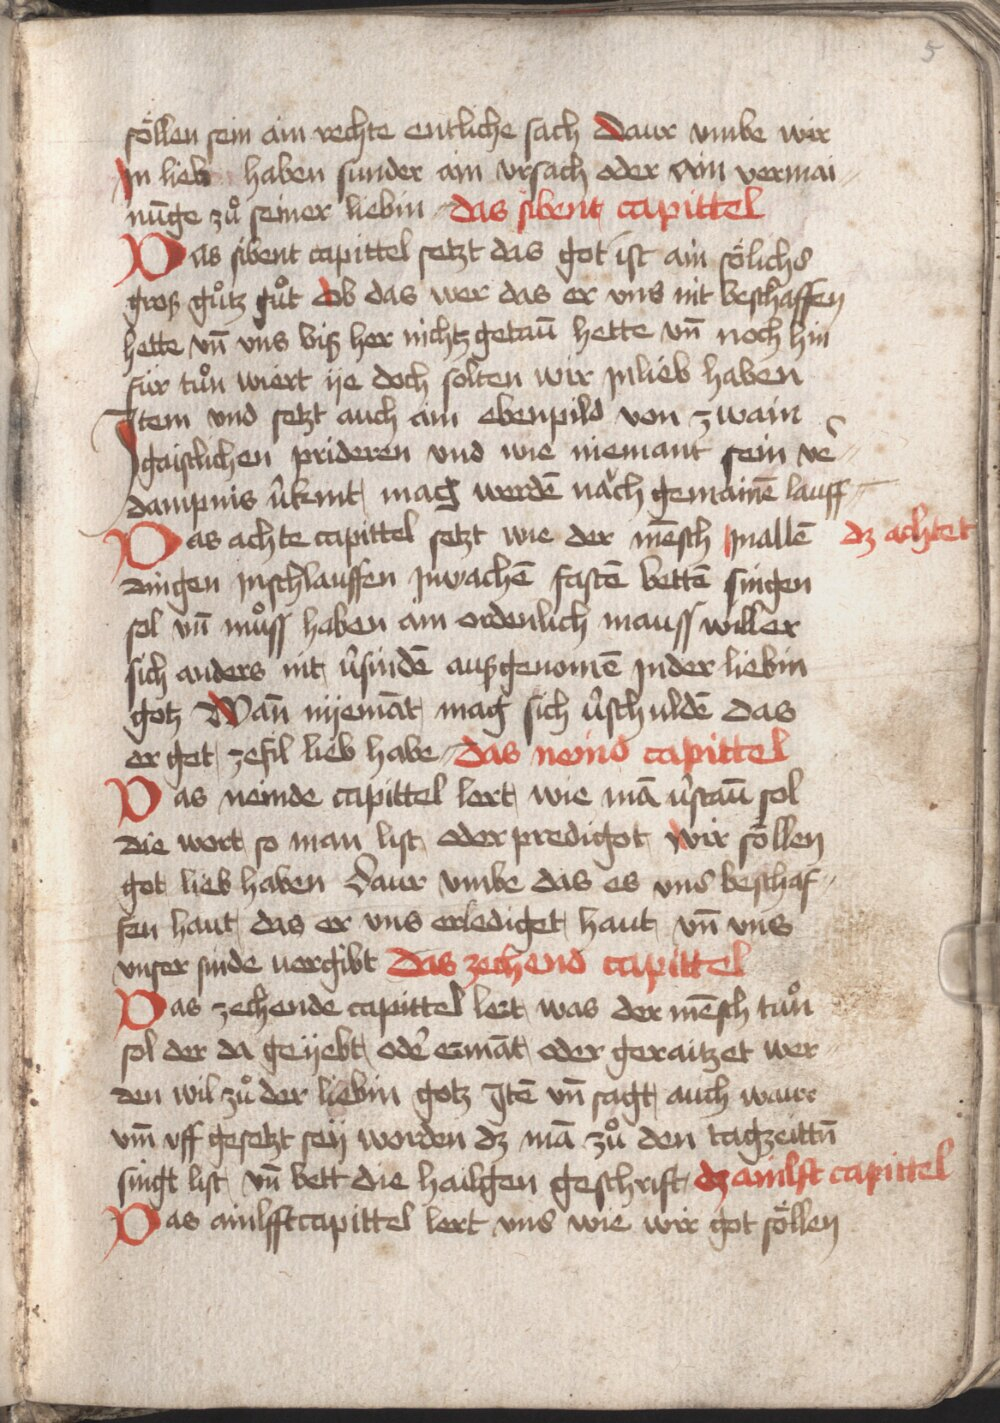 5
söllen sein ain rechte entliche sach Daur vmbe wir
Jn lieb haben sunder ain vrsach oder von vermai
nu̅ge zů seiner liebin das sibent capittel
Das sibent capittel setzt das got ist ain söliches
groß gůtz gůt Ob das wer das er vns nit beschaffen
hette vn̅ vns biß her nichtz getau̅ hette vn̅ noch hin
für tůn wiert ÿe doch solten wir Jnlieb haben
Jtem vnd setzt auch ain ebenpild von zwain
gaistlichen prideren vnd wie niemant sein v̅e
dampnis v̅kent mag werde̅ nǎch gemaine̅ lauff
Das achte capittel setzt wie der me̅sch Jnalle̅ dz achtet
dingen Jnschlauffen Jnwache̅ faste̅ bette̅ singen
sol vn̅ můss haben ain ordenlich mauss willer
sich anders nit v̅sinde̅ außgenome̅ Jnder liebin
gotz Wan̅ nÿema̅t mag sich v̅schulde̅ das
er got zefil lieb habe das neind capittel
Das neinde capittel lert wie ma̅ v̅stau̅ sol
die wort so man list oder predigot wir söllen
got lieb haben Daur vmbe das es vns beschaf
fen haut das er vns erlediget haut vn̅ vns
vnser sinde vergibt Das zechend capittel
Das zechende capittel lert was der me̅sch tůn
sol der da geÿebt ode̅ ema̅t oder geraitzet wer
den wil zů der liebin gotz Jte̅ vn̅ sagt auch waur
vm̅ vff gesetzt seÿ worden dz ma̅ zů den tagzeittn̅
singt list vn̅ bett die hailgen geschrift dz ainlft capittel
Das ainlfft capittel lert vns wie wir got söllen